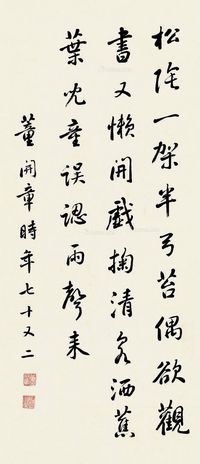 松陰一架半弓苔偶欲觀
書又懶開戲掬清泉洒蕉
葉兒童誤認雨聲来
董開章時年七十又二